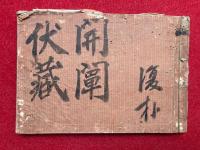 開闡
伏藏
復朴